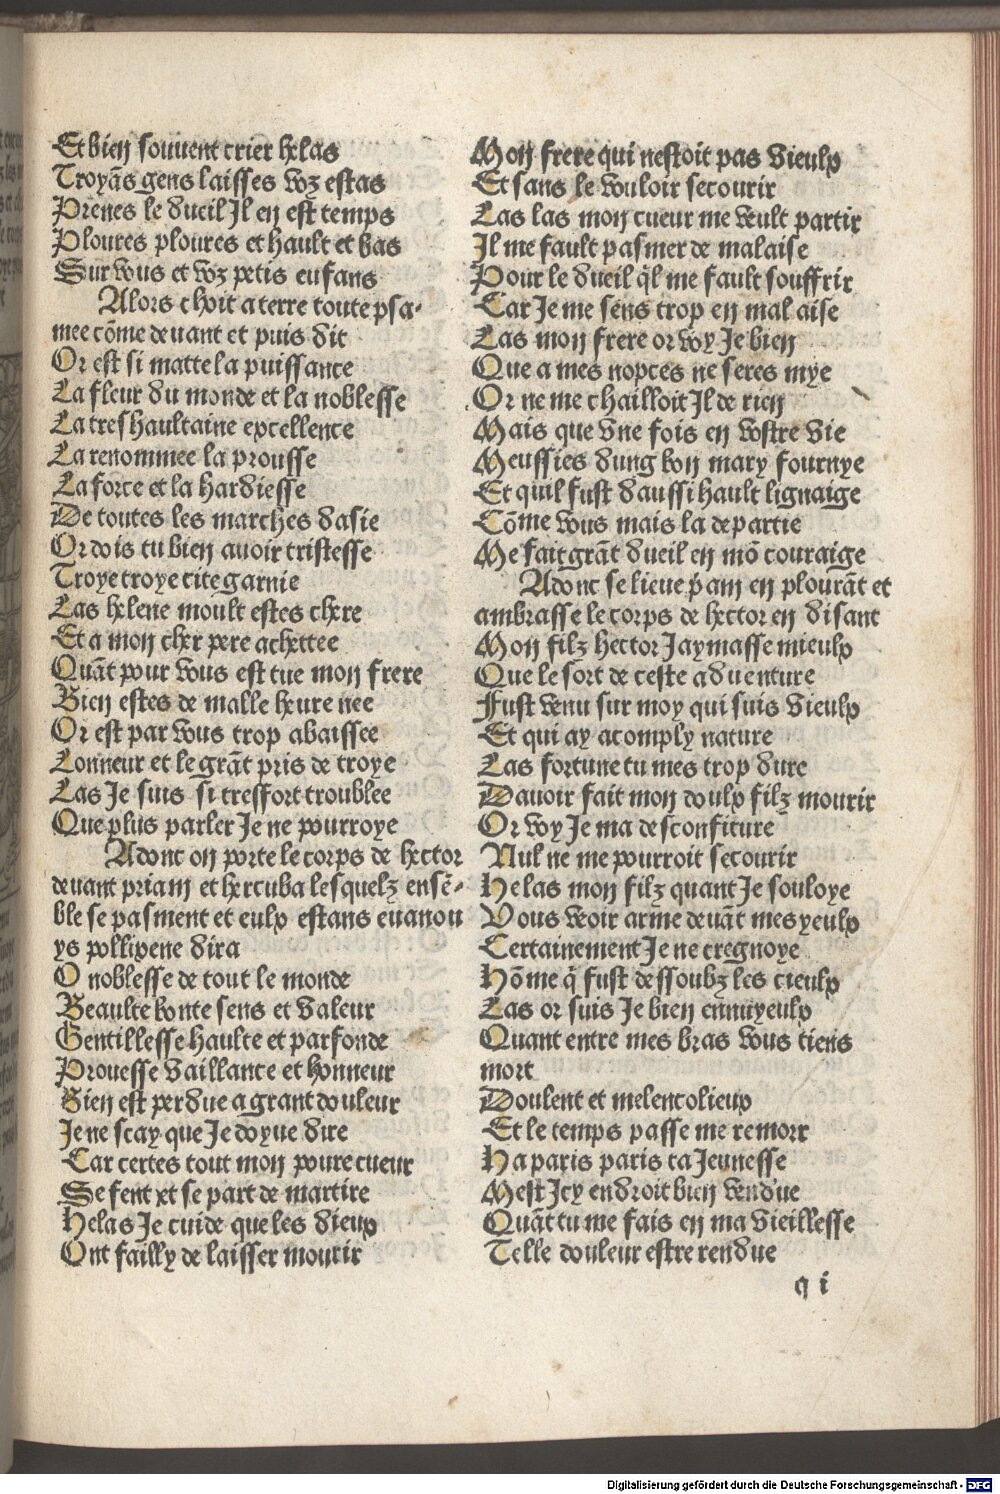 Et bien souuent crier helas
Troyãs gens laisses voz estas
Prenes le dueil Il en est temps
Ploures ploures et hault et bas
Sur vous et voz petis eufans
Alors choit a terre toute psa-
mee cõme deuant et puis dit
Or est si matte la puissance
La fleur du monde et la noblesse
La treshaultaine excellence
La renommee la prousse
La force et la hardiesse
De toutes les marches dasie
Or dois tu bien auoir tristesse
Troye troye cite garnie
Las helene moult estes chere
Et a mon cher pere achettee
Quãt pour vous est tue mon frere
Bien estes de malle heure nee
Or est par vous trop abaissee
Lonneur et le grãt pris de troye
Las Je suis si tresfort troublee
Que plus parler Je ne pourroye
Adonc on porte le corps de hector
deuant priam et hercuba lesquelz ensẽ-
ble se pasment et eulx estans euanou
ys pollixene dira
O noblesse de tout le monde
Beaulte bonte sens et valeur
Gentillesse haulte et parfonde
Prouesse vaillance et honneur
Bien est perdue a grant douleur
Je ne scay que Je doyue dire
Car certes tout mon poure cueur
Se fent et se part de martire
Helas Je cuide que les dieux
Ont failly de laisser mourir
Mon frere qui nestoit pas vieulx
Et sans le vouloir secourir
Las las mon cueur me veult partir
Il me fault pasmer de malaise
Pour le dueil ql̃ me fault souffrir
Car Je me sens trop en mal aise
Las mon frere or voy Je bien
Que a mes nopces ne seres mye
Or ne me chailloit Il de rien
Mais que vne fois en vostre vie
Meussies dung bon mary fournye
Et quil fust daussi hault lignaige
Cõme vous mais la departie
Me fait grãt dueil en mõ couraige
Adonc se lieue p̃am en plourãt et
ambrasse le corps de hector en disant
Mon filz hector Jaymasse mieulx
Que le sort de ceste aduenture
Fust venu sur moy qui suis vieulx
Et qui ay acomply nature
Las fortune tu mes trop dure
Dauoir fait mon doulx filz mourir
Or voy Je ma desconfiture
Nul ne me pourroit secourir
Helas mon filz quant Je souloye
Vous veoir arme deuãt mes yeulx
Certainement Je ne cregnoye
Hõme q̃ fust dessoubz les cieulx
Las or suis Je bien ennuyeulx
Quant entre mes bras vous tiens
mort
Doulent et melencolieux
Et le temps passe me remort
Ha paris paris ta Jeunesse
Mest Icy endroit bien vendue
Quãt tu me fais en ma vieillesse
Telle douleur estre rendue
q i
Digitalisierung gefördert durch die Deutsche Forschungsgemeinschaft - DFG